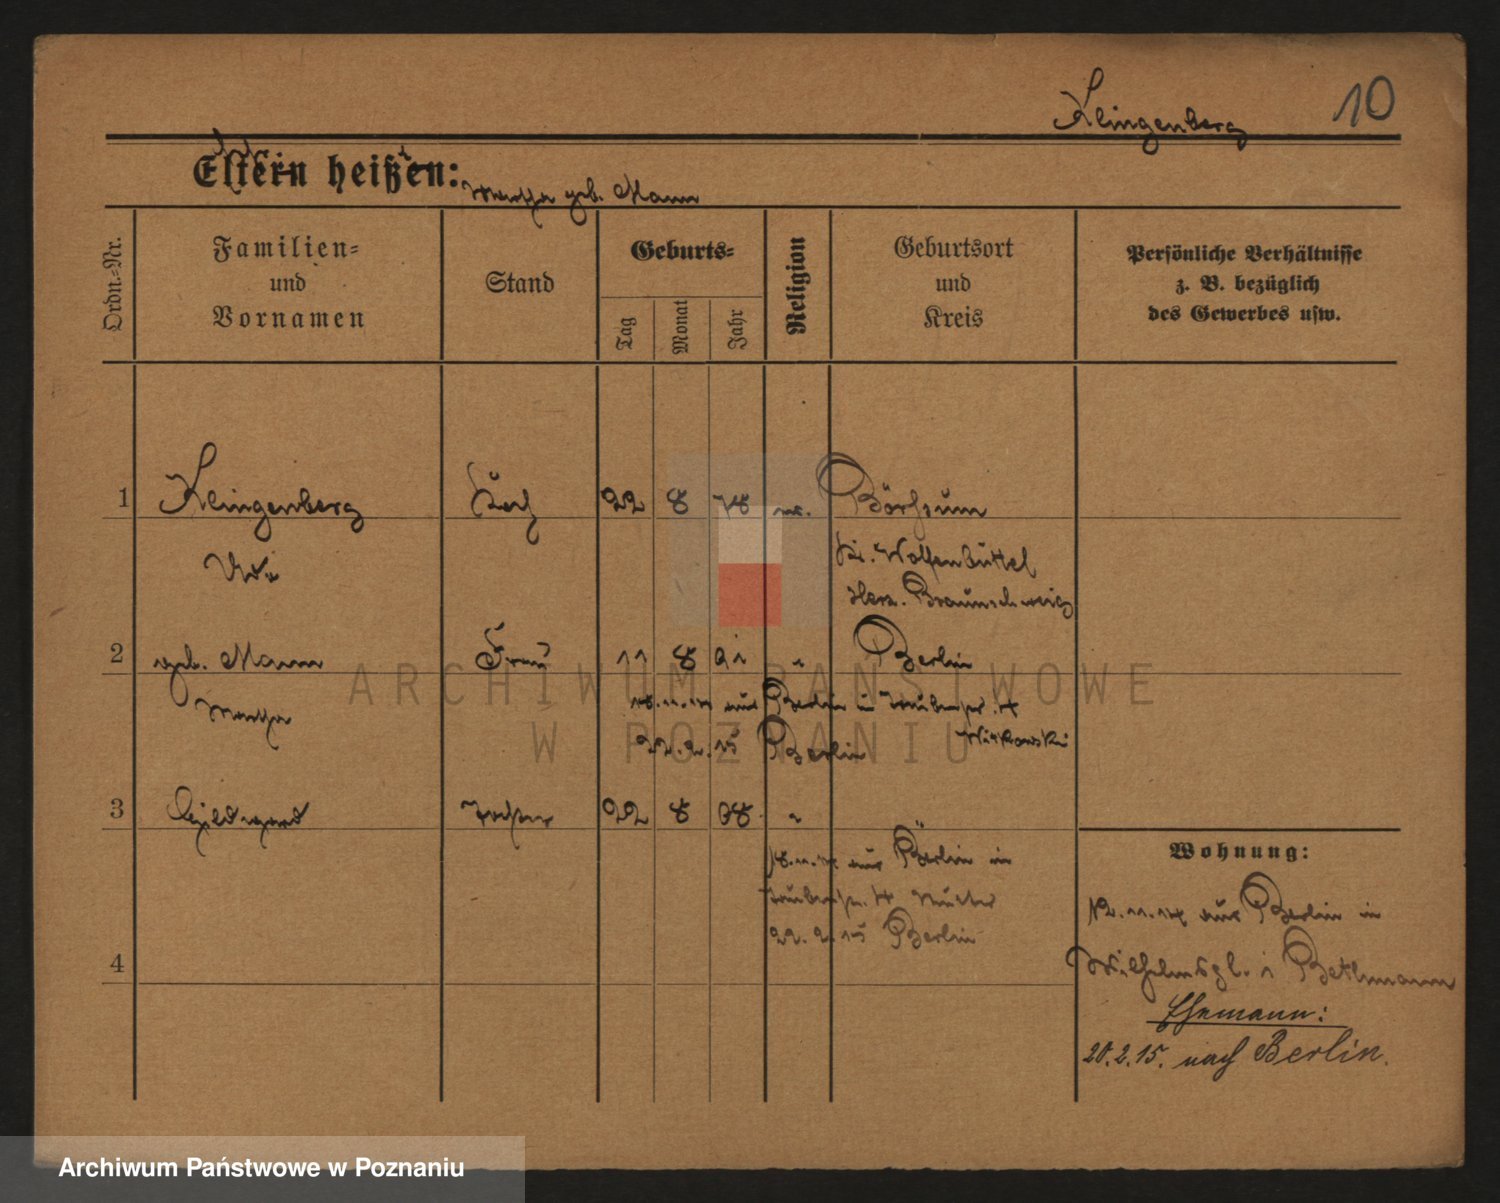 Klingenberg 10
Eltern heißen:
Martha geb. Mann
Ordn.-Nr.
Familien-
und
Vornamen
Stand
Geburts-
Tag
Monat
Jahr
Religion
Geburtsort
und
Kreis
Persönliche Verhältnisse
z. B. bezüglich
des Gewerbes usw.
1 Klingenberg Koch 22 8 78 Börssum
Kr. Wolfenbüttel
Herz. Braunschweig
2 geb. Mann Frau 11 8 Berlin
Martha
18.11.14 aus Berlin in 4
Witkowski
22.2.15 Berlin
3 Hildegard Tochter 22 8 08 "
18.11.14 aus Berlin in
4 Mutter
22.2.15 Berlin
4
Wohnung:
12.11.14 aus Berlin in
Wilhelmspl. 1 Bethmann
Ehemann:
20.2.15. nach Berlin.
ARCHIWUM PAŃSTWOWE
W POZNANIU
Archiwum Państwowe w Poznaniu